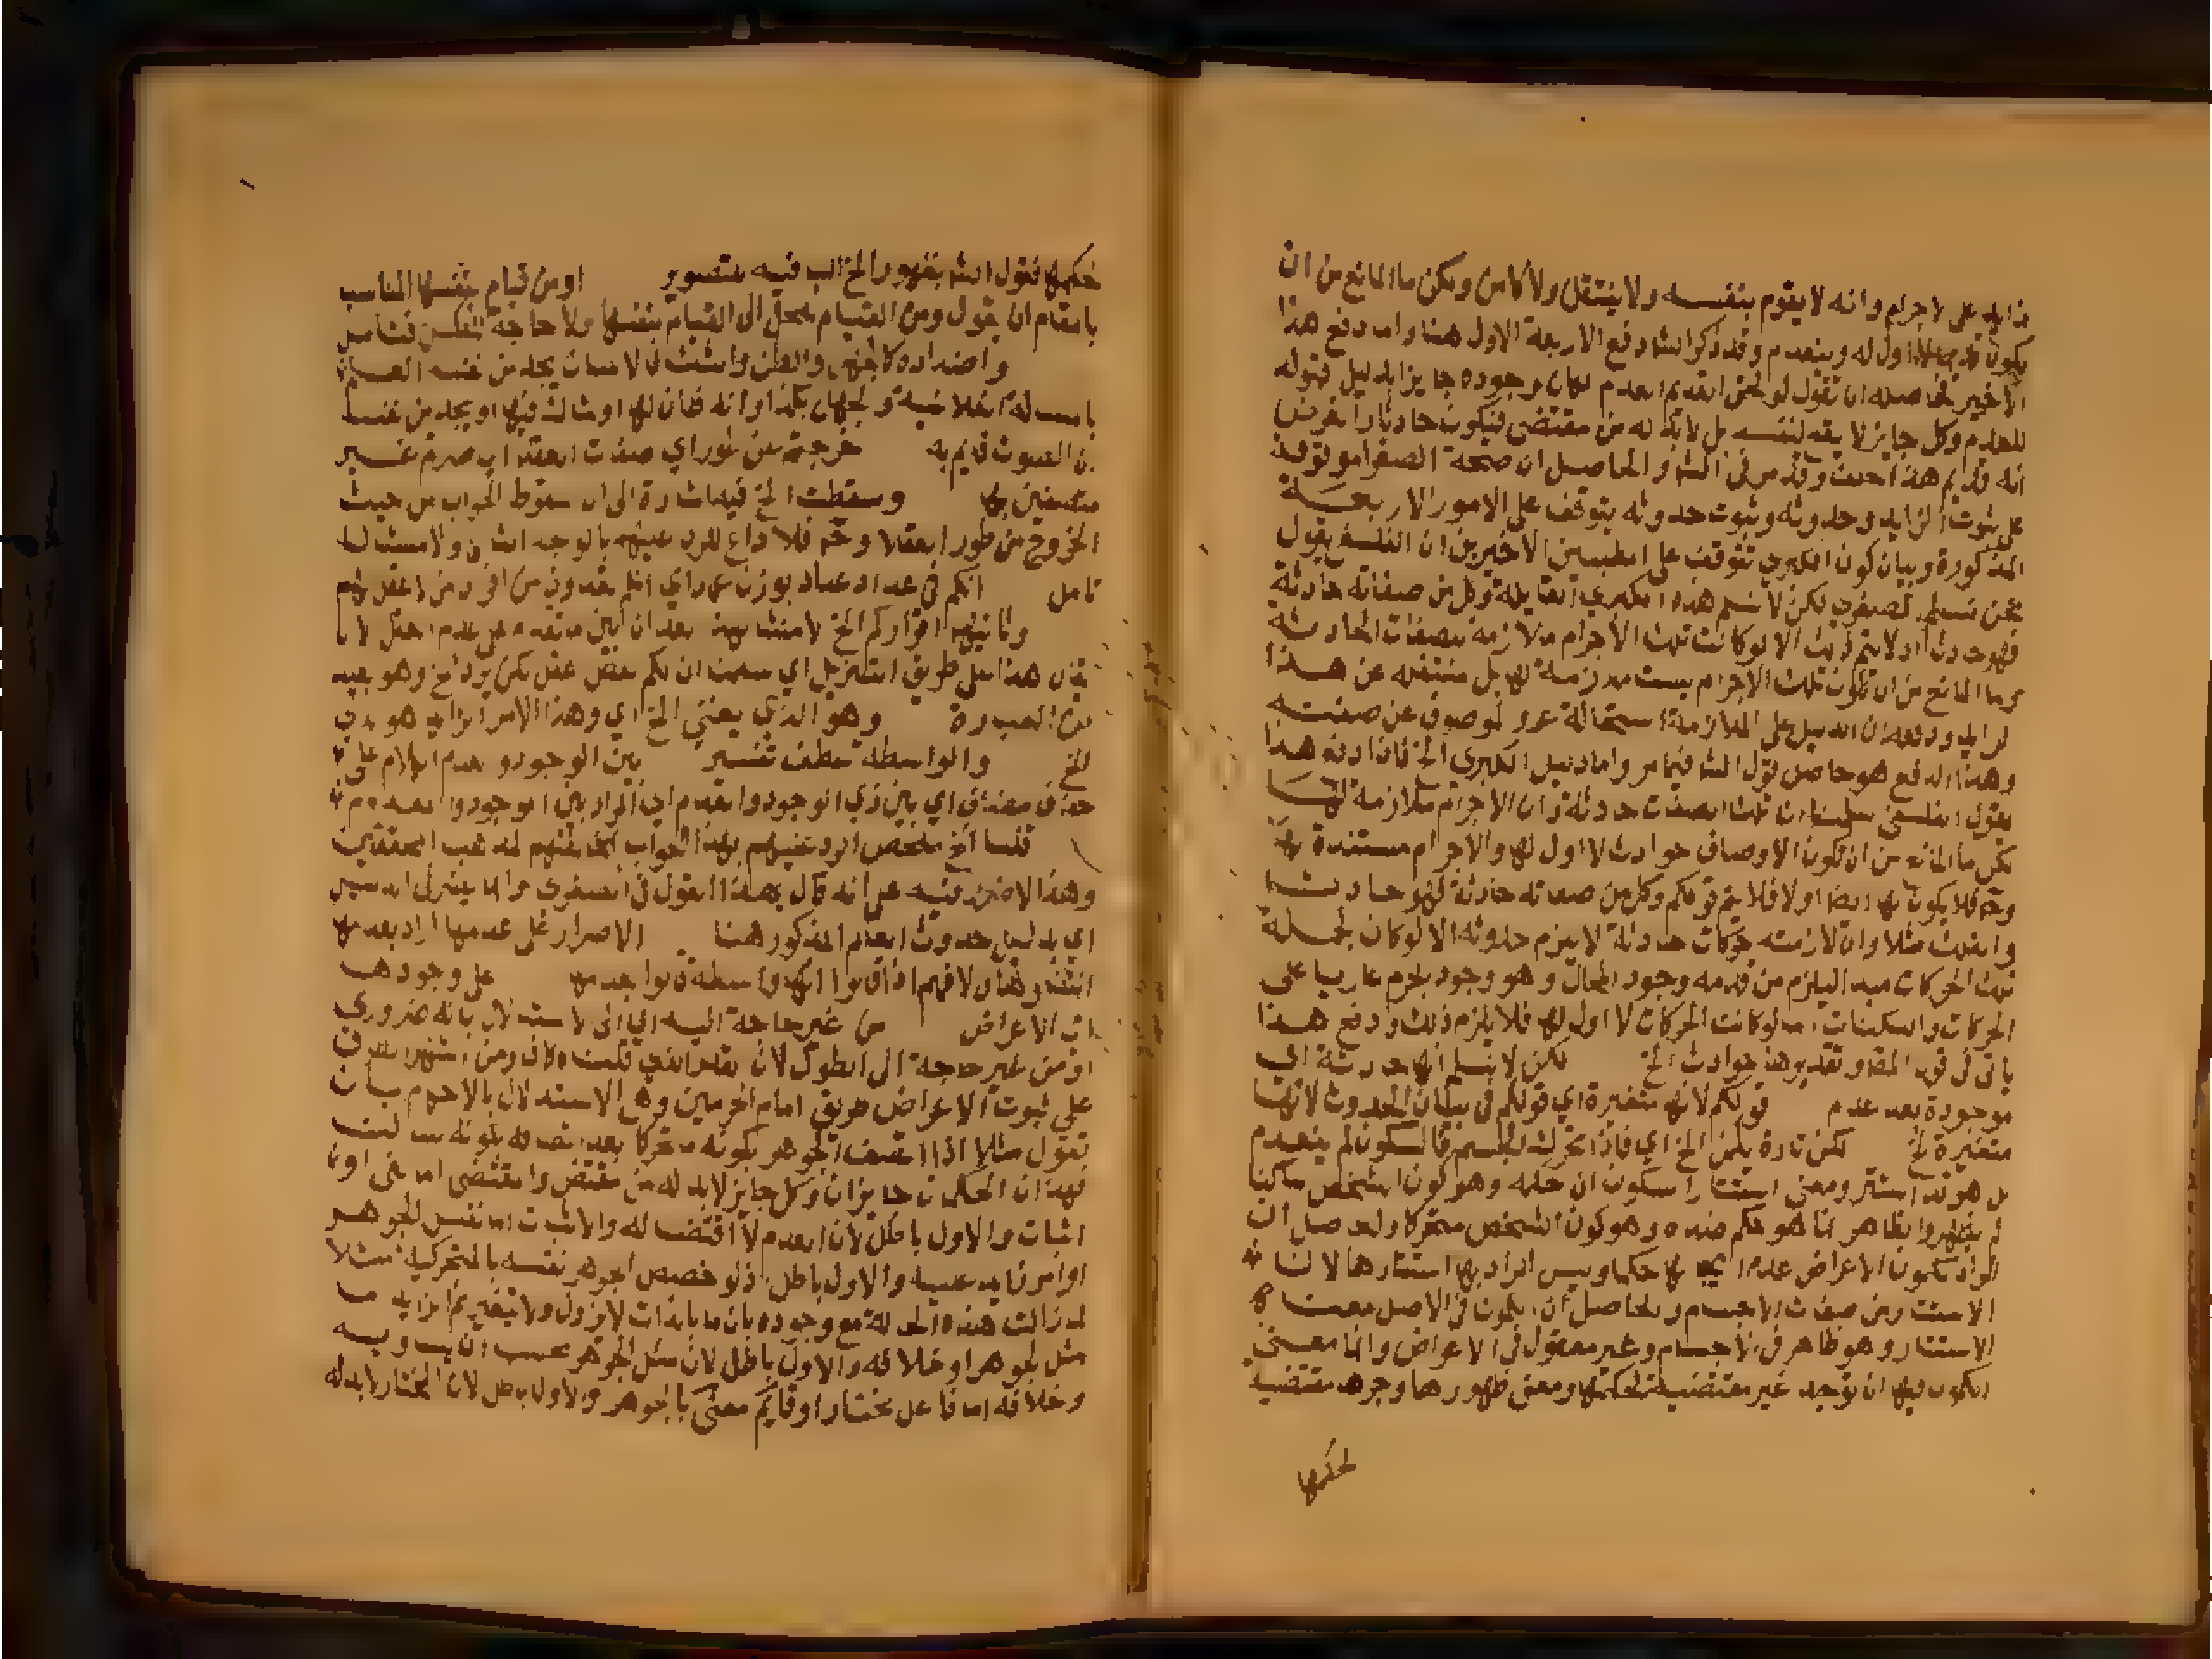 زايد على لاجرام وانه لا يقوم بنفسه ولا ينتقل ولا كامن ولكن ما المانع من ان
يكون قديما لا اول له وينعدم وقد ذكر الش دفع الاربعة الاول هنا واما دفع هذا
الاخير فحاصله ان تقول لو لحق القديم العدم لكان وجوده جايزا بدليل قبوله
للعدم وكل جايز لا يقع لنفسه بل لا بد له من مقتضى فيكون حادثا والغرض
انه قديم هذا خلف وقد مر في الش والحاصل ان صحة الصغرا موقوفة
على ثبوت الزايد وحدوثه وثبوت حدوثه يتوقف على الامور الاربعة
المذكورة وبيان كون الكبرى تتوقف على المطلبين الاخيرين ان الفلسفي يقول
نحن نسلم الصغرى لكن لا نسلم هذه الكبرى القايلة وكل من صفاته حادثة
فهو حادث اذ لا يتم ذلك الا لو كانت تلك الاجرام ملازمة للصفات الحادثة
وما المانع من ان تكون تلك الاجرام ليست ملازمة لها بل منفكة عن هذا
الزايد ودفعه ان الدليل على الملازمة استحالة عرو الموصوف عن صفته
وهذا الدفع هو حاصل قول الش فيما مر واما دليل الكبرى الخ فاذا دفع هذا
يقول الفلسفي سلمنا ان تلك الصفات حادثة وان الاجرام ملازمة لها
لكن ما المانع من ان تكون الاوصاف حوادث لا اول لها والاجرام مستندة بها
وح فلا يكون لها ايضا اولا فلا يتم قولكم وكل من صفاته حادثة فهو حادث
والفلك مثلا وان لازمته حركات حادثة لا يلزم حدوثه الا لو كان لجملة
تلك الحركات مبدا ليلزم من قدمه وجود المحال وهو وجود الجرم عاريا على
الحركات والسكنات اما لو كانت الحركات لا اول لها فلا يلزم ذلك ودفع هذا
ياتي في قول المص وتقدير هذا حوادث الخ لكن لا نسلم انها حادثة اي
موجودة بعد عدم قولكم لانها متغيرة اي قولكم في بيان الحدوث لانها
متغيرة الخ لكن تارة يكمن الخ اي فاذا تحرك الجسم فالسكون لم ينعدم
بل هو قد استتر ومعنى استتار السكون ان حكمه وهو كون الشخص ساكنا
لم يظهر والظاهر انما هو حكم ضده وهو كون الشخص متحركا والحاصل ان
المراد بكمون الاعراض عدم لها حكما وليس المراد بها استتارها لان
الاستتار من صفات الاجسام والحاصل ان يكون في الاصل معناه
الاستتار وهو ظاهر في الاجسام وغير معقول في الاعراض وانما معنى
الكمون فيها ان توجد غير مقتضية لحكمها ومعنى ظهورها وجرها مقتضية
لحكمها
حكمها فقول الش بظهورالخ اي فيه بتصوير او من قيام بنفسها المناسب
بالمقام ان يقول ومن القيام بمحل الى القيام بنفسها ولا حاجة للعكس فتامل
واضداده كالجهل والظن والشك لان الانسان يجد من نفسه العلم
بالمسالة الفلانية والجهل بكذا وانه ظان لها او شاك فيها او يجد من نفسه
ان الصوت قايم به خرجتم عن طور اي صفات العقلا اي صرتم غير
متصفين بها وسقطت الخ فيه اشارة الى ان سقوط الجواب من حيث
الخروج من طور العقلا وح فلا داع للرد عليهم بالوجه الثاني ولا مسئلة
تامل انكم في عداد عماد بوزن اي انكم تعدون من افراد من لا عقل لهم
وثانيهما اقراركم الخ لا منشا بعد ان بين ما تقدم على عدم العقل لا
يقال هذا على طريق التنزل اي سلمنا ان لكم بعض عقل لكن يرد الخ وهو بعيد
من العبارة وهو الذي يعنى الخ اي وهذا الامر الزايد هو الذي
الخ والواسطة عطف تفسير بين الوجود والعدم الكلام على
حذف مضاف اي بين ذي الوجود والعدم اي المراد بين الموجود والمعدوم
قلنا الخ ملخص الرد عليهم بهذا الجواب مخالفتهم لمذهب المحققين
وهذا لا ضرر فيه على انه قال بهذا القول في الصغرى وانما ينظر الى الدليل
اي بدليل حدوث العالم المذكور هنا الاصرار على عدمها اراد بعدمها
انتفاوها لانهم اذا قالوا انها واسطة قالوا بعدمها على وجودها
اي الاعراض من غير حاجة اليه اي الى الاستدلال بانه ضروري
او من غير حاجة الى الطول لان القدر الذي قلناه كاف ومن اشهر الطرق
على ثبوت الاعراض طريق امام الحرمين وهي الاستدلال بالاحكام بان
تقول مثلا اذا اتصف الجوهر بكونه متحركا بعد اتصافه بكونه ساكنا
فهذان الحكمان جايزان وكل جايز لا بد له من مقتض والمقتضى اما نفي او
اثبات والاول باطل لان العدم لا اقتضا له والاثبات اما نفس الجوهر
او امر زايد عليه والاول باطل اذ لو خصص الجوهر نفسه بالمتحركية مثلا
لما زالت هذه الحالة مع وجوده بان ما بالذات لا يزول ولا يتغير ثم الزايد اما
مثل الجوهر او خلافه والاول باطل لان مثل الجوهر يجب ان يساويه
وخلافه اما فاعل مختار او قايم معنى بالجوهر والاول باطل لان المختار لا بد له